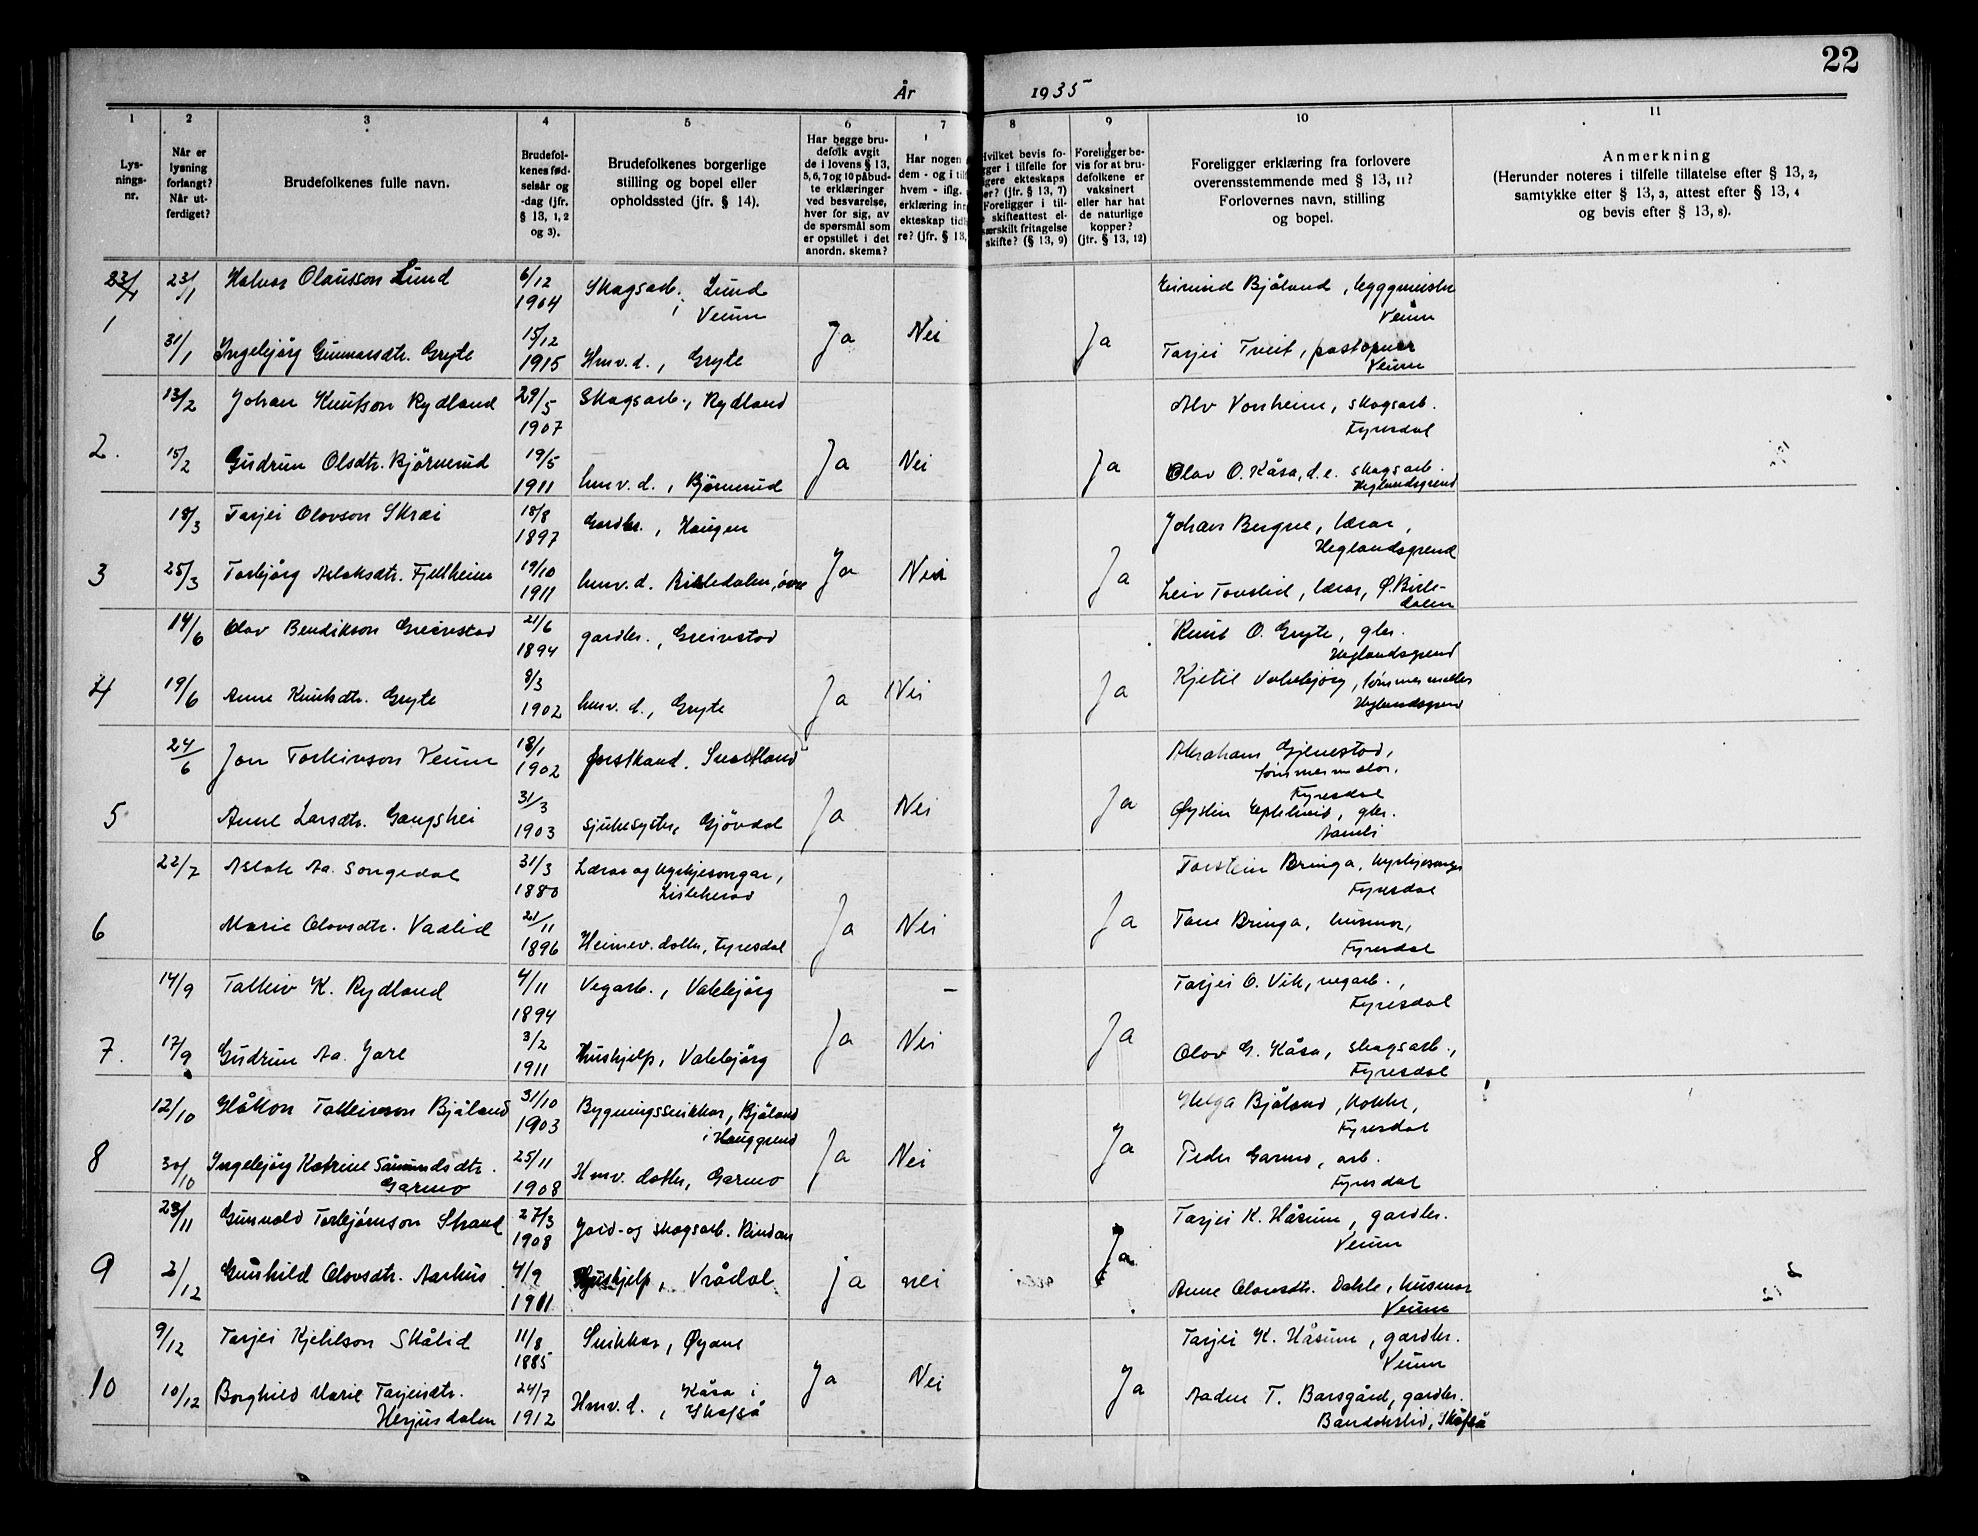 22
År 1935
1 2 3 4 5 6 7 8 9 10 11
Lys-
nings-
nr.
Når er
lysning
forlangt?
Når ut-
ferdiget?
Brudefolkenes fulle navn.
Brudefol-
kenes fød-
selsår og
-dag (jfr.
§ 13, 1, 2
og 3).
Brudefolkenes borgerlige
stilling og bopel eller
opholdssted (jfr. § 14).
Har begge bru-
defolk avgit
de i lovens § 13,
5, 6, 7 og 10 påbud-
te erklæringer
ved besvarelse,
hver for sig, av
de spørsmål som
er opstillet i det
anordn. skema?
Har nogen
dem - og i
hvem - iflg.
erklæring
ekteskap
re? (jfr. § 13,
Hvilket bevis fo-
ger i tilfelle for
ekteskaps
er? (jfr. § 13, 7)
Foreligger i til-
skifteattest el-
særskilt fritagelse
skifte? (§ 13, 9)
Foreligger be-
vis for at bru-
defolkene er
vaksinert
eller har hat
de naturlige
kopper?
(jfr. § 13, 12)
Foreligger erklæring fra forlovere
overensstemmende med § 13, 11?
Forlovernes navn, stilling
og bopel.
Anmerkning
(Herunder noteres i tilfelle tillatelse efter § 13, 2,
samtykke efter § 13, 3, attest efter § 13, 4
og bevis efter § 13, 8).
23/1 23/1 Halvor Olausson Lund 6/12 1904 Skogsarb. Lund i Veum Bjåland, byggmeister Veum
1 31/1 Ingebjörg Gunnarsdtr. Gryte 15/12 1915 Hmv.d., Gryte Ja Nei Ja Tarjei Tveit, postopnar Veum
13/2 Johan Knutson Rydland 29/5 1907 Skogsarb., Rydland Alv Vonheim, skogsarb. Fyresdal
2. 15/2 Gudrun Olsdtr. Björnerud 19/5 1911 hmv.d., Björnerud Ja Nei Ja Olav O. Kåsa, d.e. skogsarb. Heglandsgrend
18/3 Tarjei Olovson Skrei 18/8 1897 Gardbr., Haugen Johan Bergne, lærar, Heglandsgrend
3 25/3 Torbjörg Aslaksdtr. Fjellheim 19/10 1911 hmv.d. Birtedalen, övre Ja Nei Ja Leiv Tovslid, lærar, Ø. Birte-
dalen
14/6 Olav Bendikson Greivstad 21/6 1894 gardbr., Greivstad Knut O. Gryte, gbr. Heglandsgrend
4 19/6 Anne Knutsdtr. Gryte 8/3 1902 hmv.d., Gryte Ja Nei Ja Kjetil Valebjörg, tömmermåler Heglandsgrend
24/6 Jon Torleivson Veum 18/1 1902 forstkand. Svartland Abraham Gjenestad, tömmermålar, Fyresdal
5 Anne Larsdtr. Gangshei 31/3 1903 sjukesyster, Gjövdal Ja Nei Ja Øystein Eptelid, gbr. Aamli
22/7 Aslak Aa. Songedal 31/3 1880 Lærar og kyrkjesongar, Lisleherad Torstein Bringa, kyrkjesongar Fyresdal
6 Marie Olovsdtr. Vadlid 21/11 1896 Heimev. dotter, Fyresdal Ja Nei Ja Tone Bringa, husmor, Fyresdal
14/9 Talleiv K. Rydland 4/11 1894 Vegarb., Valebjörg — Tarjei O. Vik, vegarb., Fyresdal
7. 17/9 Gudrun Aa. Jore 3/2 1911 Hushjelp, Valebjörg Ja Nei Ja Olav G. Kåsa, skogsarb., Fyresdal
12/10 Håkon Talleivson Bjåland 31/10 1903 Bygningssnikkar, Bjåland i Hauggrend Helga Bjåland, kokke, Fyresdal
8 30/10 Ingebjörg Katrine Såmundsdtr. Garmo 25/11 1908 Hmv. dotter, Garmo Ja Nei Ja Peder Garmo, arb. Fyresdal
23/11 Gunvald Torbjørnson Strand 27/3 1908 Jord- og skogsarb. Rindan Tarjei K. Håsum, gardbr. Veum
9 2/12 Gunhild Olovsdtr. Aarhus 4/9 1911 Hushjelp, Vrådal ja nei Ja Anne Olovsdtr. Dahle, husmor Veum
9/12 Tarjei Kjetilson Skålid 11/8 1885 Snikkar, Øyane Tarjei K. Håsum, gardbr. Veum
10 10/12 Borghild Marie Tarjeisdtr. Herjusdalen 24/7 1912 Hmv.d., Kåsa i Skafså Ja Nei Ja Aadne T. Barsgård, gardbr. Bandakslid, Skafså